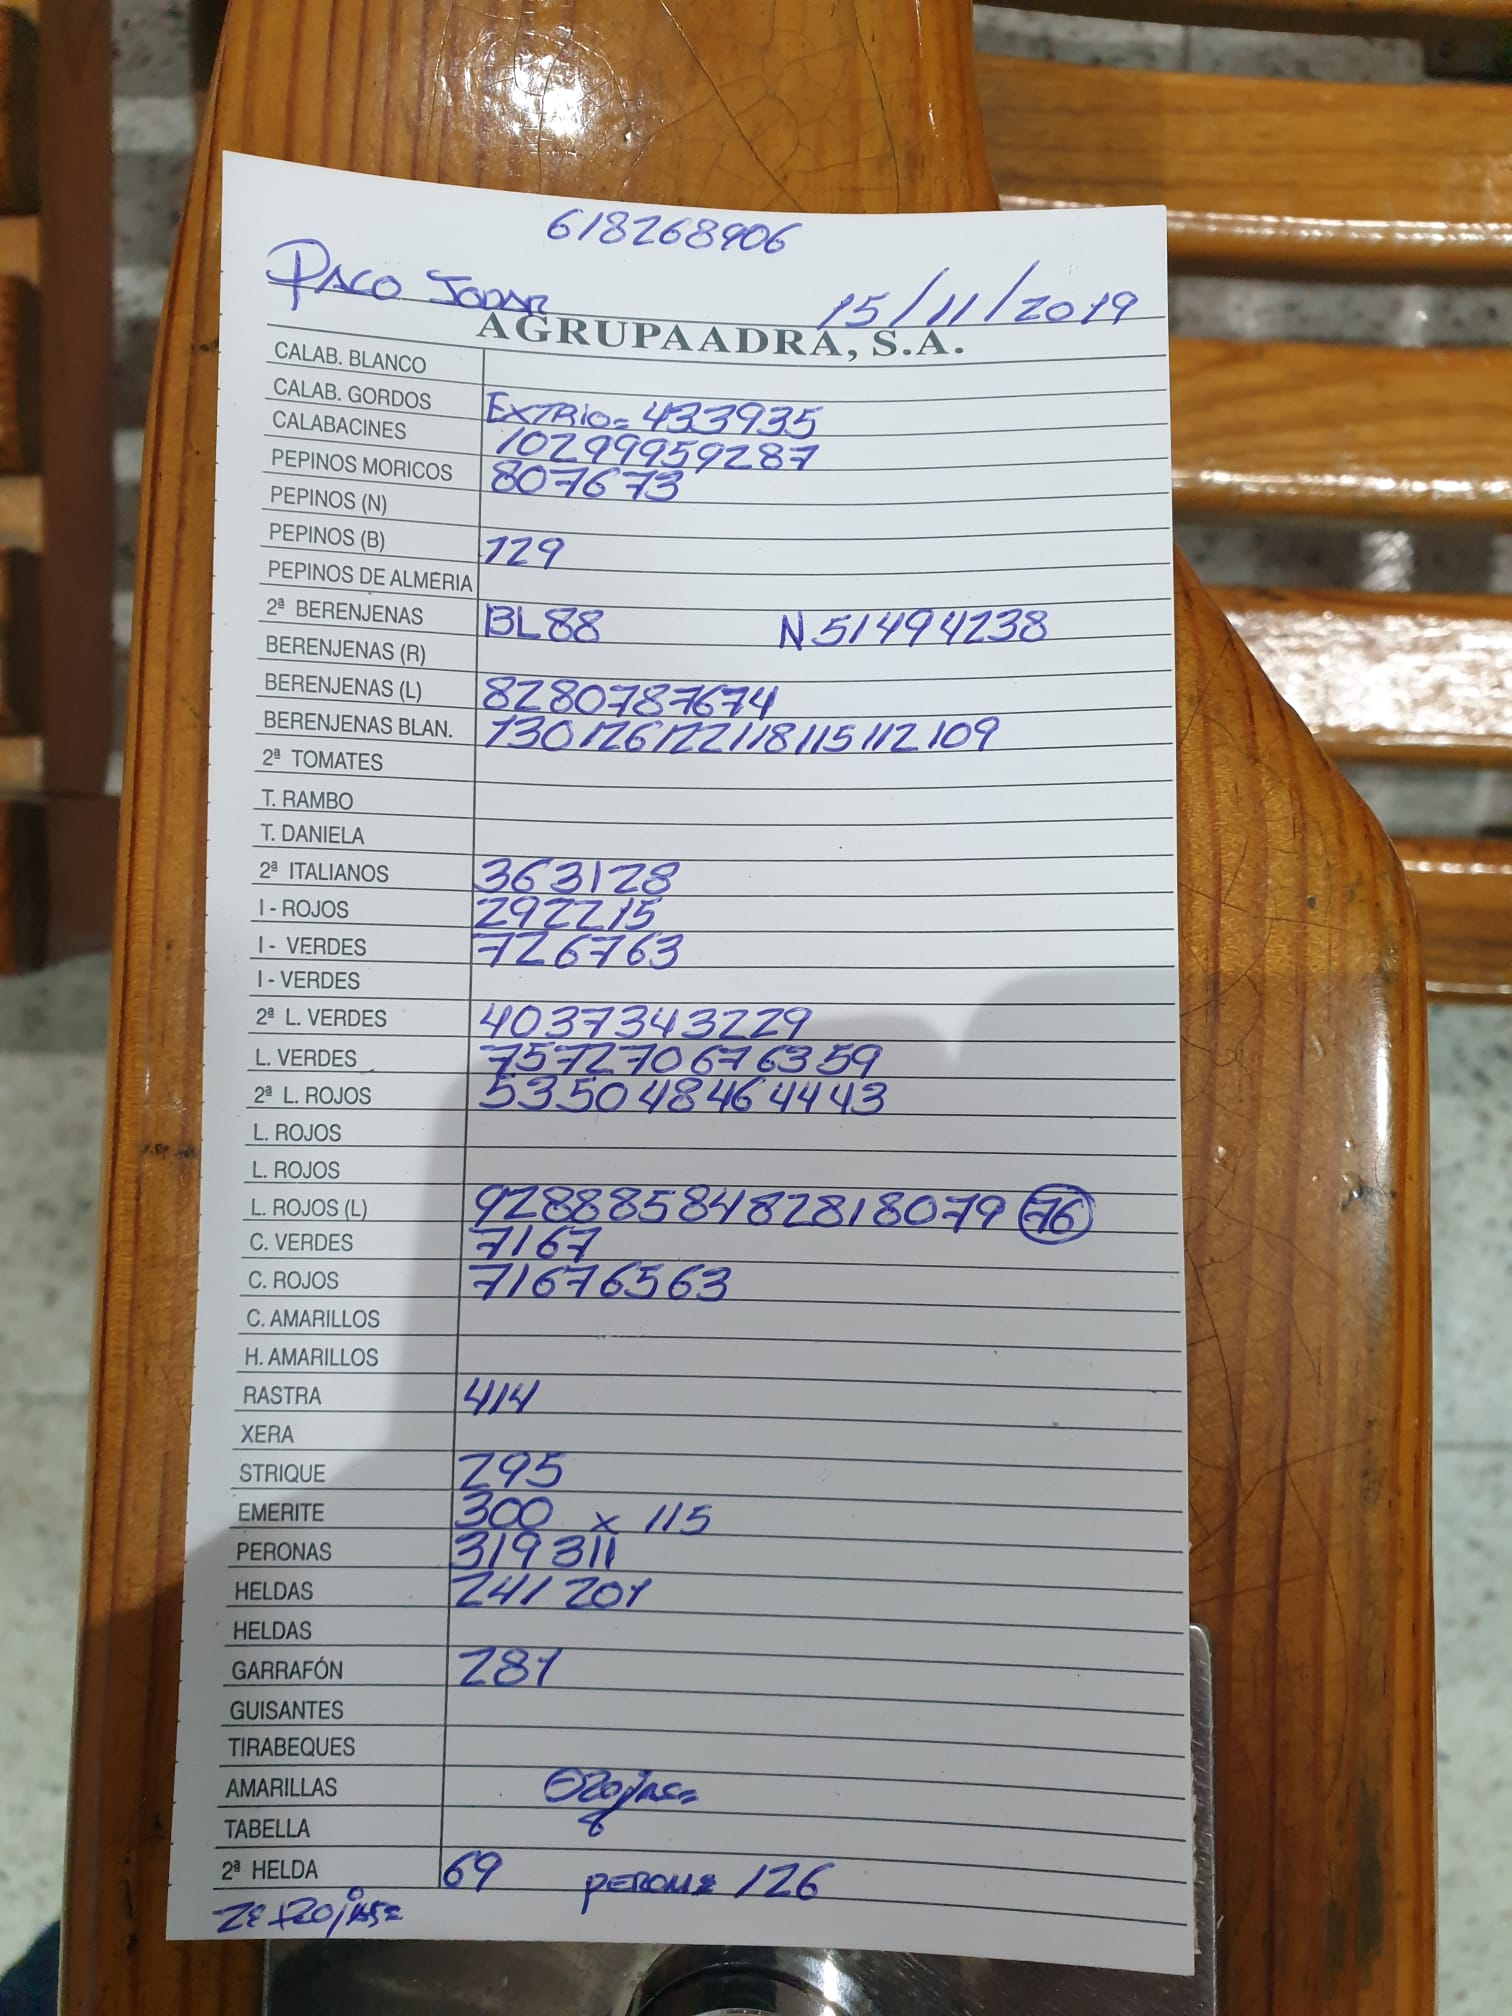 618268906
PACO JODAR 15/11/2019
AGRUPAADRA, S.A.
CALAB. BLANCO
CALAB. GORDOS EXTRIO= 433935
CALABACINES 10299959287
PEPINOS MORICOS 807673
PEPINOS (N)
PEPINOS (B) 129
PEPINOS DE ALMERIA
2ª BERENJENAS BL88 N51494238
BERENJENAS (R)
BERENJENAS (L) 8280787674
BERENJENAS BLAN. 130126122118115112109
2ª TOMATES
T. RAMBO
T. DANIELA
2ª ITALIANOS 363128
I - ROJOS 292215
I - VERDES 726763
I - VERDES
2ª L. VERDES 4037343229
L. VERDES 757270676359
2ª L. ROJOS 535048464443
L. ROJOS
L. ROJOS
L. ROJOS (L) 9288858482818079 76
C. VERDES 7167
C. ROJOS 71676563
C. AMARILLOS
H. AMARILLOS
RASTRA 414
XERA
STRIQUE 295
EMERITE 300 x 115
PERONAS 319311
HELDAS 241 201
HELDAS
GARRAFÓN 281
GUISANTES
TIRABEQUES
AMARILLAS
TABELLA 8
2ª HELDA 69 126